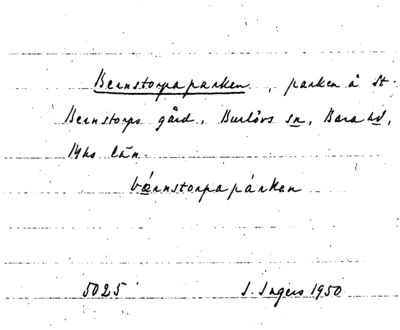 Bernstorpaparken, parken å St.
Bernstorps gård, Burlövs sn, Bara hd,
Mhs län.
bærnstorpapárkan
5025 I. Ingers 1950